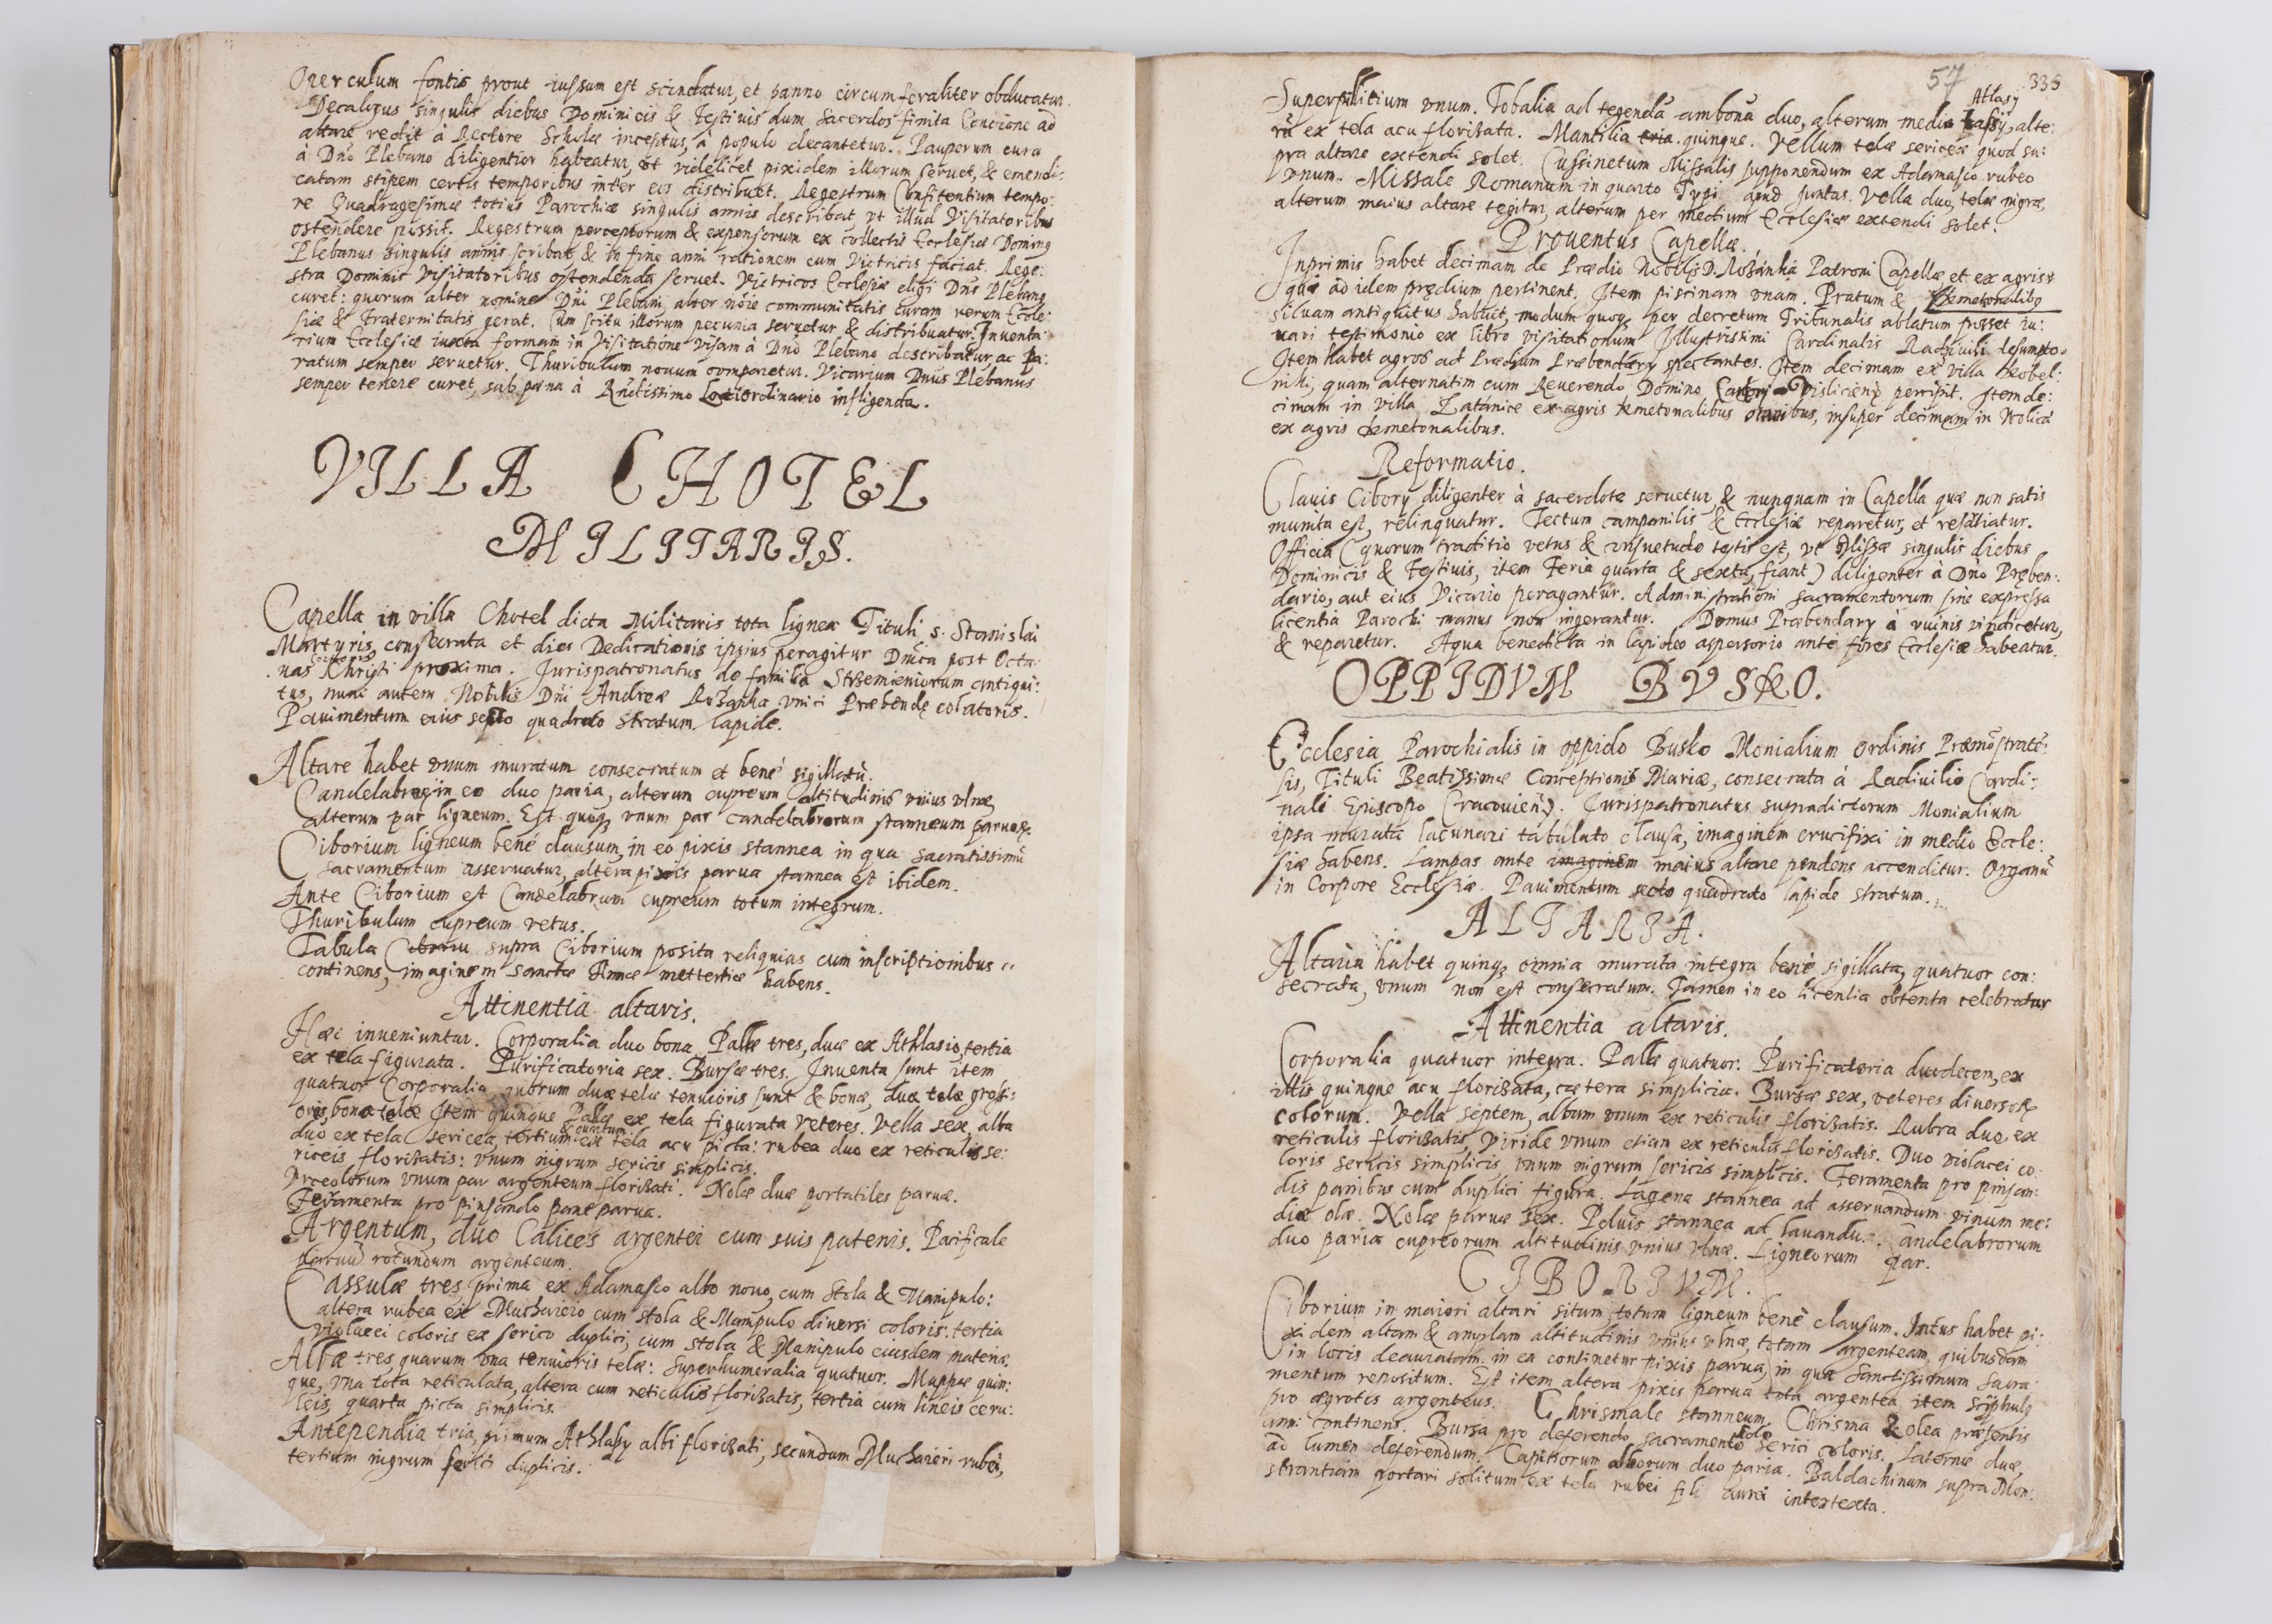 Operculum fontis prout iussum est scindatur, et panno circumferaliter obducatur.
Decalogus singulis diebus Dominicis & Festiuis dum sacerdos finita Concione ad
altare redit à Rectore Scholæ inceptus, à populo decantetur. Pauperum cura
à Dño Plebano diligentior habeatur, vt videlicet pixidem illorum seruet, & emendi:
catam stipem certis temporibus inter eos distribuat. Regestrum Confitentium tempo:
re Quadragesimæ totius Parochiæ singulis annis describat vt illud Visitatoribus
ostendere possit. Regestrum perceptorum & expensorum ex collectis Ecclesiæ Doming
Plebanus singulis annis scribat, & in fine anni rationem cum Victricis faciat. Rege:
stra Dominis Visitatoribus ostendenda seruet. Victricos Ecclesiæ eligi Dñs Plebang
curet: quorum alter nomine Dñi Plebani, alter nõie communitatis curam rerum Eccle:
siæ & Fraternitatis gerat. Cum scitu illorum pecunia seruetur & distribuatur. Inuenta:
rium Ecclesiæ iuxta formam in Visitatione visam à Dño Plebano describatur, ac pa:
ratum semper seruetur. Thuribulum nouum comparetur. Vicarium Dñus Plebanus
semper tenere curet, sub pœna à Rndissimo Lociordinario infligenda.
VILLA CHOTEL
MILITARIS.
Capella in villa Chotel dicta Militaris tota lignea Tituli s. Stanislai
Martyris consecrata et dies Dedicationis ipsius peragitur Dñica post Octa
Corporis
uas Christi proxima. Jurispatronatus de familia Strzemieniorum antiqui:
tus, nunc autem Nobilis Dñi Andreæ Rożanka vnici Præbendę colatoris.
Pauimentum eius secto quadrato stratum lapide.
Altare habet vnum muratum consecratum et bene sigillatũ.
Candelabrorũ in eo duo paria, alterum cupreum altitudinis vnius vlnæ,
alterum par ligneum. Est quoqꝫ vnum par candelabrorum stanneum paruorꝫ.
Ciborium ligneum bené clausum, in eo pixis stannea in qua sacratissimũ
sacramentum asseruatur, altera pixis parua stannea est ibidem.
Ante Ciborium est Candelabrum cupreum totum integrum.
Thuribulum cupreum vetus.
Tabula supra Ciborium posita reliquias cum inscriptionibus
continens, imaginem sanctæ Annæ mettertiæ habens.
Attinentia altaris.
Hæc inueniuntur. Corporalia duo bona. Pallæ tres, duæ ex Athlasio, tertia
ex tela figurata. Purificatoria sex. Bursæ tres. Inuenta sunt item
quatuor Corporalia, quorum duæ telæ tenuioris sunt & bonæ, duæ telæ grossi:
oris, bonæ telæ. Item quinque Pallæ ex tela figurata veteres. Vella sex, alba
& quartum
duo ex tela sericea, tertium ex tela acu picta: rubea duo ex reticulis se:
riceis florisatis: vnum nigrum sericis simplicis.
Vrceolorum vnum par argenteum florisati. Nolæ duæ portatiles paruæ.
Feramenta pro pinsando pane parua.
Argentum, duo Calices argentei cum suis patenis. Pacificale
paruũ rotundum argenteum.
Cassulæ tres, prima ex Adamasco albo nouo, cum Stola & Manipulo:
altera rubea ex Muchaierio cum stola & Manipulo diuersi coloris: tertia
violacei coloris ex serico duplici, cum stola & Manipulo eiusdem materiæ.
Albæ tres, quarum vna tenuioris telæ: Superhumeralia quatuor. Mappæ quin:
que, vna tota reticulata, altera cum reticulis florisatis, tertia cum lineis ceru:
leis, quarta picta simplicis.
Antependia tria, primum Athlasy albi florisati, secundum Muchaieri rubei,
tertium nigrum serici duplicis.
57 335
Athlasÿ
Superpellitium vnum. Tobalia ad tegendã ambonã duo, alterum media, alte:
rũ ex tela acu florisata. Mantilia tria quinque. Vellum telæ sericeæ quod su:
pra altare extendi solet. Cussinetum Missalis supponendum ex Adamasco rubeo
vnum. Missale Romanum in quarto Typi apud Juntas. Vella duo, telæ nigræ,
alterum maius altare tegitur, alterum per medium Ecclesiæ extendi solet.
Prouentus Capellæ.
Inprimis habet decimam de Prædio Nobilis D. Rożanka Patroni Capellæ et ex agris
quæ ad idem prędium pertinent. Item piscinam vnam. Pratum & kmetonalibg
siluam antiquitus habuit, modum quoqꝫ per decretum Tribunalis ablatum posset iu:
uari testimonio ex libro visitationum Illustrissimi Cardinalis Radziuili desumpto.
Item habet agros ad Prædium Præbendary spectantes. Item decimam ex villa Kobel:
niki, quam alternatim cum Reuerendo Domino Cantori Visliciēn percipit. Item de:
cimam in villa Zatanice ex agris kmetonalibus omnibus, insuper decimam in Wolica
ex agris kmetonalibus.
Reformatio.
Clauis Cibory diligenter à sacerdote seruetur, & nunquam in Capella quæ non satis
munita est, relinquatur. Tectum campanilis & Ecclesiæ reparetur, et resartiatur.
Officia (quorum traditio vetus & consuetudo testis est, vt Missæ singulis diebus
Dominicis & Festiuis, item Feria quarta & sexta, fiant) diligenter à Dño Pręben:
dario, aut eius Vicario peragantur. Administrationi sacramentorum sine expressa
licentia Parochi manus non ingerantur. Domus Præbendary à ruinis vindicetur,
& reparetur. Aqua benedicta in lapideo aspersorio ante fores Ecclesiæ habeatur.
OPPIDVM BVSKO.
Ecclesia Parochialis in oppido Busko Monialium ordinis Præmõstratẽ:
sis, Tituli Beatissimæ Conceptionis Mariæ, consecrata à Radiuilio Cardi:
nali Episcopo Cracouien. Jurispatronatus supradictorum Monialium
ipsa murata lacunari tabulato clausa, imaginem crucifixi in medio Eccle:
siæ habens. Lampas ante imaginem maius altare pendens accenditur. Organũ
in Corpore Ecclesiæ. Pauimentum secto quadrato lapide stratum.
ALTARIA.
Altaria habet quinqꝫ omnia murata integra bené sigillata, quatuor con:
secrata, vnum non est consecratum. Tamen in eo licentia obtenta celebratur
Attinentia altaris.
Corporalia quatuor integra. Pallæ quatuor. Purificatoria duodecem, ex
illis quinque acu florisata, cætera simplicia. Bursæ sex, veteres diuersorꝫ
colorum. Vella septem, album vnum ex reticulis florisatis. Rubra duo ex
reticulis florisatis, viride vnum etiam ex reticulis florisatis. Duo violacei co:
loris sericis simplicis, vnum nigrum sericis simplicis. Feramenta pro pinsan:
dis panibus cum duplici figura. Lagena stannea ad asseruandum vinum me:
diæ olæ. Nolæ paruæ sex. Peluis stannea ad lauandu. Candelabrorum
duo paria cupreorum altitudinis vnius vlnæ. Ligneorum par.
CIBORIVM.
Ciborium in maiori altari situm, totum ligneum bené clausum. Intus habet pi:
xidem altam & amplam altitudinis vnius vlnæ, totam argenteam, quibusdam
in locis deauratam. in ea continetur pixis parua, in qua Sanctissimum Sacra
mentum repositum. Est item altera pixis parua tota argentea, item scyphulg
pro ægrotis argenteus. Chrismale stanneum Chrisma & olea præsentis
anni continens. Bursa pro deferendo sacramento serici coloris. Laternæ duæ,
ad lumen deferendum. Capitiorum alborum duo paria. Baldachinum supra Mon:
strantiam portari solitum ex tela rubei fili aurei intertexta.